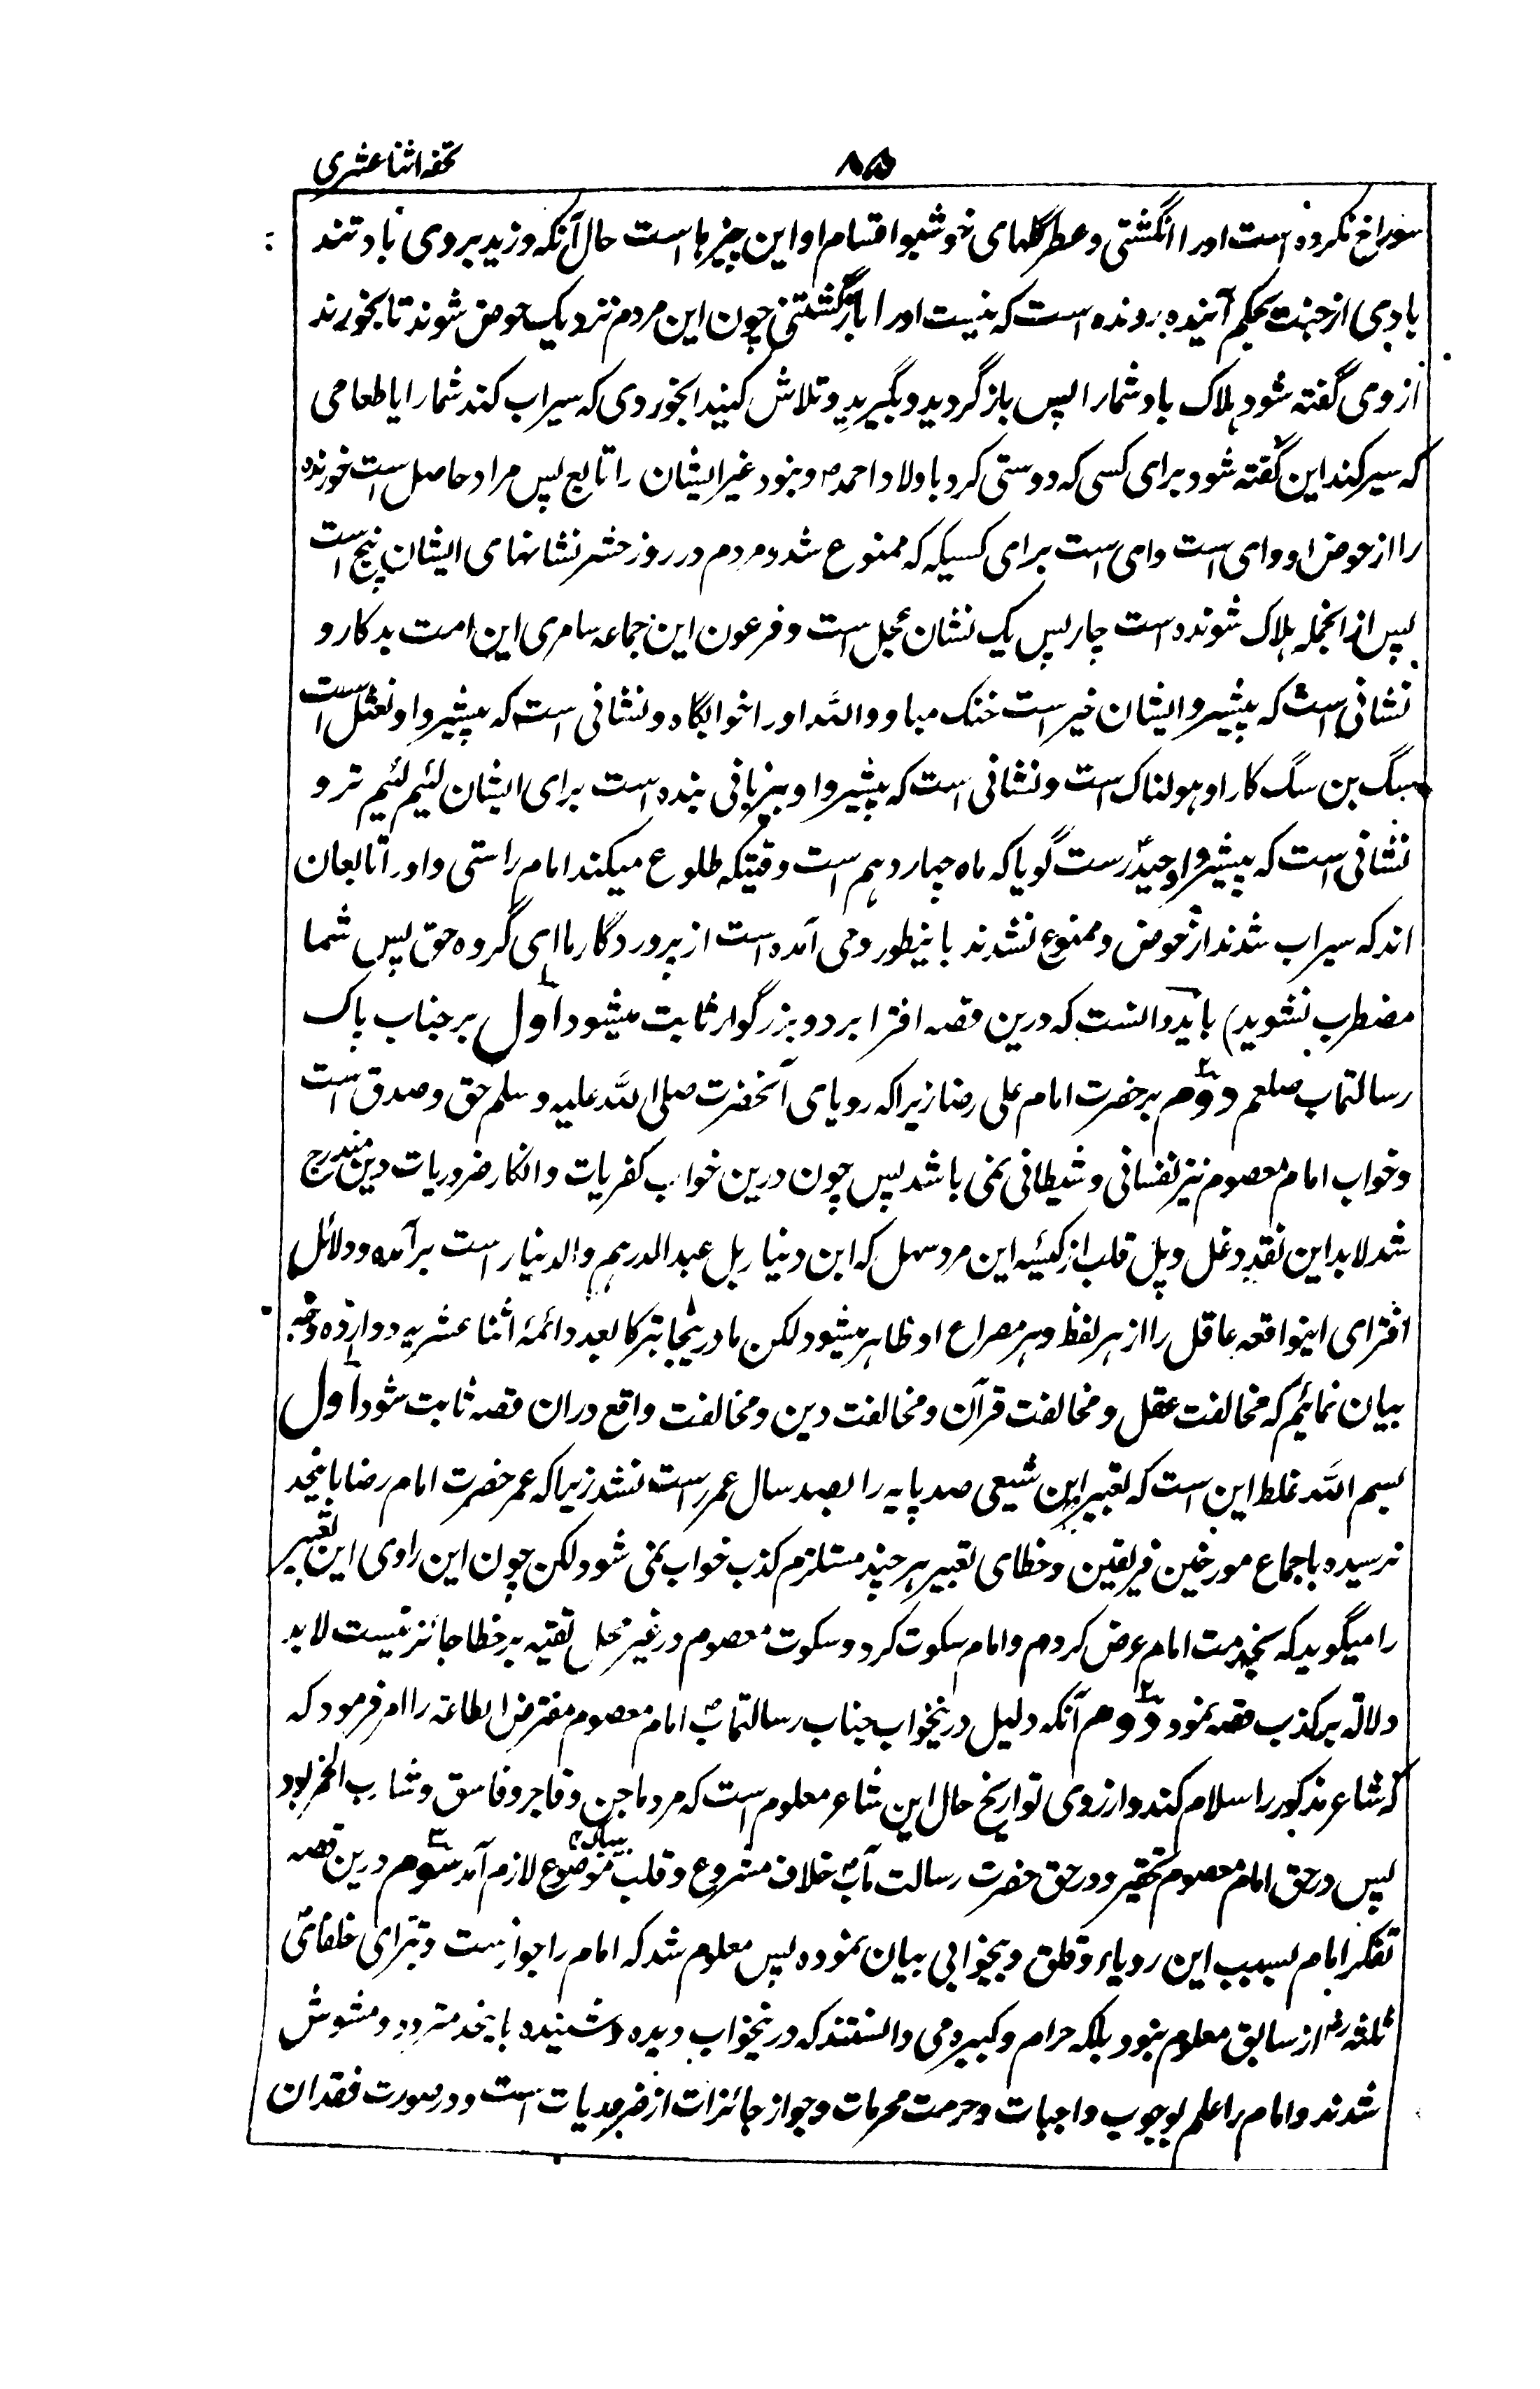 تحفه اثنا عشری
۸۵
سوراخ نکرده است اورا انگشتی و عطر گلهای خوشبو اقسام او این چیزها است حال آنکه وزید بروی باد تند
بادی از جنت بحکم آینده رونده است که نیست اورا بازگشتنی چون این مردم نزدیک حوض شوند تا بخورند
از وی گفته شود هلاک باد شما را پس باز گردید و بگیرید و تلاش کنید آبخوردی که سیراب کند شما را یا طعامی
که سیر کند این گفته شود برای کسی که دوستی کرد باولاد احمد ص و نبود غیر ایشان را تابع پس مراد حاصل است خورنده
را از حوض او و وای است وای است برای کسیکه که ممنوع شد و مردم در روز حشر نشانهای ایشان پنج است
پس از انجمله هلاک شونده است چار پس یک نشان عجل است و فرعون این جماعه سامری این امت بدکار و
نشانی است که پیشرو ایشان خیر است خنک مباد والله اورا خوابگاه و نشانی است که پیشرو او نعثل است
سگ بن سگ کار او هولناک است و نشانی است که پیشرو او بیزبانی بنده است برای ایشان لئیم لئیم تر و
نشانی است که پیشرو او حیدر ست گویا که ماه چهاردهم است وقتیکه طلوع میکند امام راستی و اورا تابعان
اند که سیراب شدند از حوض و ممنوع نشدند باینطور وحی آمده است از پروردگار ما ای گروه حق پس شما
مضطرب نشوید) باید دانست که درین قصه افترا بر دو بزرگوار ثابت میشود اول بر جناب پاک
رسالتماب صلعم دوم بر حضرت امام علی رضا زیرا که رویای آنحضرت صلی الله علیه و سلم حق و صدق است
و خواب امام معصوم نیز نفسانی و شیطانی نمی باشد پس چون درین خواب کفریات و انکار ضروریات دین مندرج
شد لابد این نقد دغل و پل قلب از کیسه این مرد سهل که ابن دنیار بل عبد الدرهم و الدنیار است برآمده و دلائل
افترای اینواقعه عاقل را از هر لفظ و هر مصراع او ظاهر میشود لکن ما درینجا تبرکا بعدد ائمهٔ اثنا عشریه دوازده وجه
بیان نمائیم که مخالفت عقل و مخالفت قرآن و مخالفت دین و مخالفت واقع دران قصه ثابت شود اول
بسم الله غلط این است که تعبیر این شیعی صد پایه را بصد سال عمر راست نشد زیرا که عمر حضرت امام رضا باینحد
نرسیده باجماع مورخین فریقین و خطای تعبیر هر چند مستلزم کذب خواب نمی شود لکن چون این راوی این تعبیر
را میگوید که بخدمت امام عرض کردم و امام سکوت کرد و سکوت معصوم در غیر محل تقیه بر خطا جائز نیست لابد
دلالة بر کذب قصه نمود دوم آنکه دلیل درینخواب جناب رسالتماب ص امام معصوم مفترض الطاعة را امر فرمود که
که شاعر مذکور را سلام کند و از روی تواریخ حال این شاعر معلوم است که مرد ماجن و فاجر و فاسق و شارب الخمر بود
پس در حق امام معصوم تحقیر و در حق حضرت رسالت مآب ص خلاف مشروع و قلب موضوع لازم آمد سوم درین قصه
تفکر امام بسبب این رویاء و قلق و بیخوابی بیان نموده پس معلوم شد که امام را جواز سب و تبرای خلفای
ثلثه رض از سابق معلوم نبود بلکه حرام و کبیره می دانستند که درینخواب دیده و شنیده باینحد متردد و مشوش
شدند و امام را علم بوجوب واجبات و حرمت محرمات و جواز جائزات از ضروریات است و در صورت فقدان